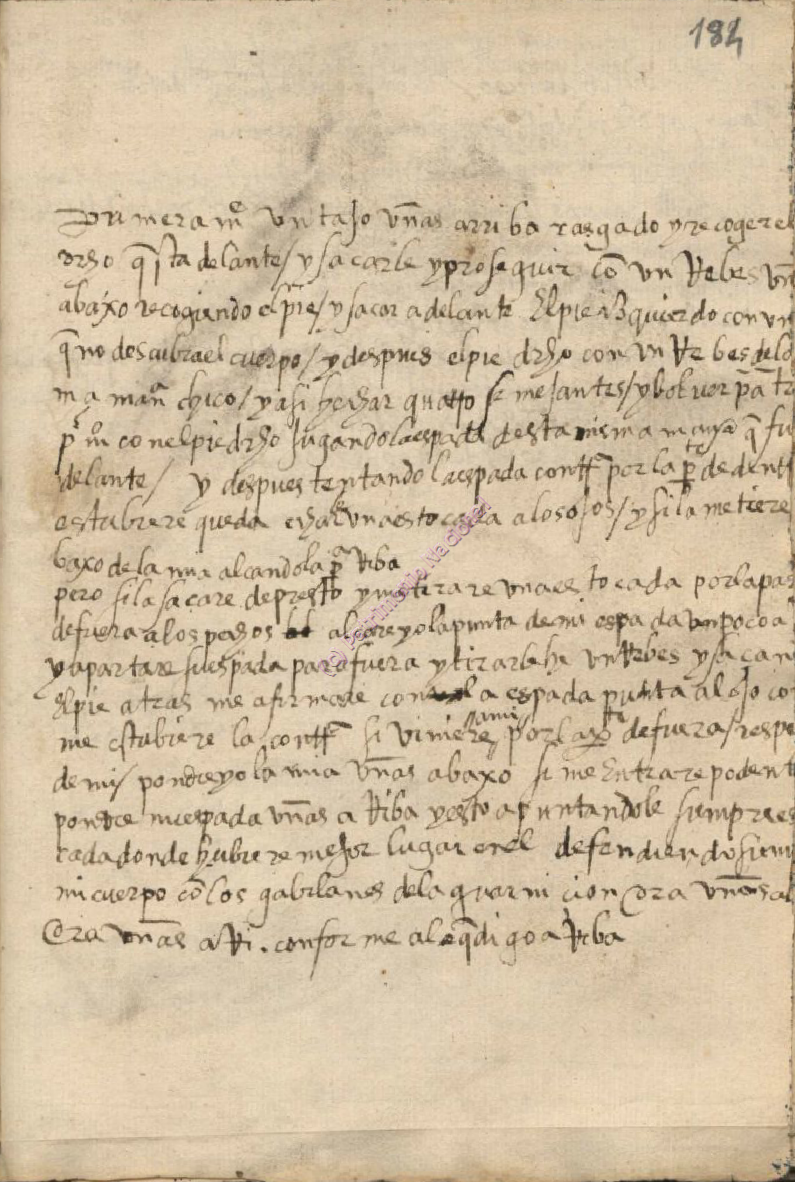 184
Primeram.e Un tajo Uñas arriba rasgado y recoger el
drho q̃ sta delante / y sacarle y proseguir cõ Un Rebes Uñ
abaxo recogiendo el pie / y sacar adelante El pie izquierdo con un
q̃ no descubra el cuerpo / y despues el pie drho con Un Rebes de lo
ma mañ chico / y asi hechar quatro semejantes / y bolver p.a tr
p.o con el pie drho jugando la espada de esta misma man.a q̃ fu
delante / y despues tentando la espada contr.a por la p.te de dent
estubiere queda echar Una estocada a los ojos / y si la metiere
baxo de la mia alcandola p.a Riba
pero si la sacare de presto y me tirare Una estocada por la par
de fuera a los pechos alçare yo la punta de mi espada Un poco a
y apartare su espada para fuera y tirarle he Un Rebes y sacan
El pie atras me afirmare con la espada punta al ojo co
me estubiere la contr.a si viniere a mi por la p.te de fuera / respe
de mi / pondre yo la mia Uñas abaxo si me Entrare po dent
pondre mi espada Uñas a Riba y esto apuntandole siempre es
cada donde hubiere mejor lugar en el defendiendo siem
mi cuerpo cõ los gabilanes de la guarnicion Ora Uñas a
Ora Uñas a Ri. conforme a lo q̃ digo a Riba
(C) Patrimonio Nacional